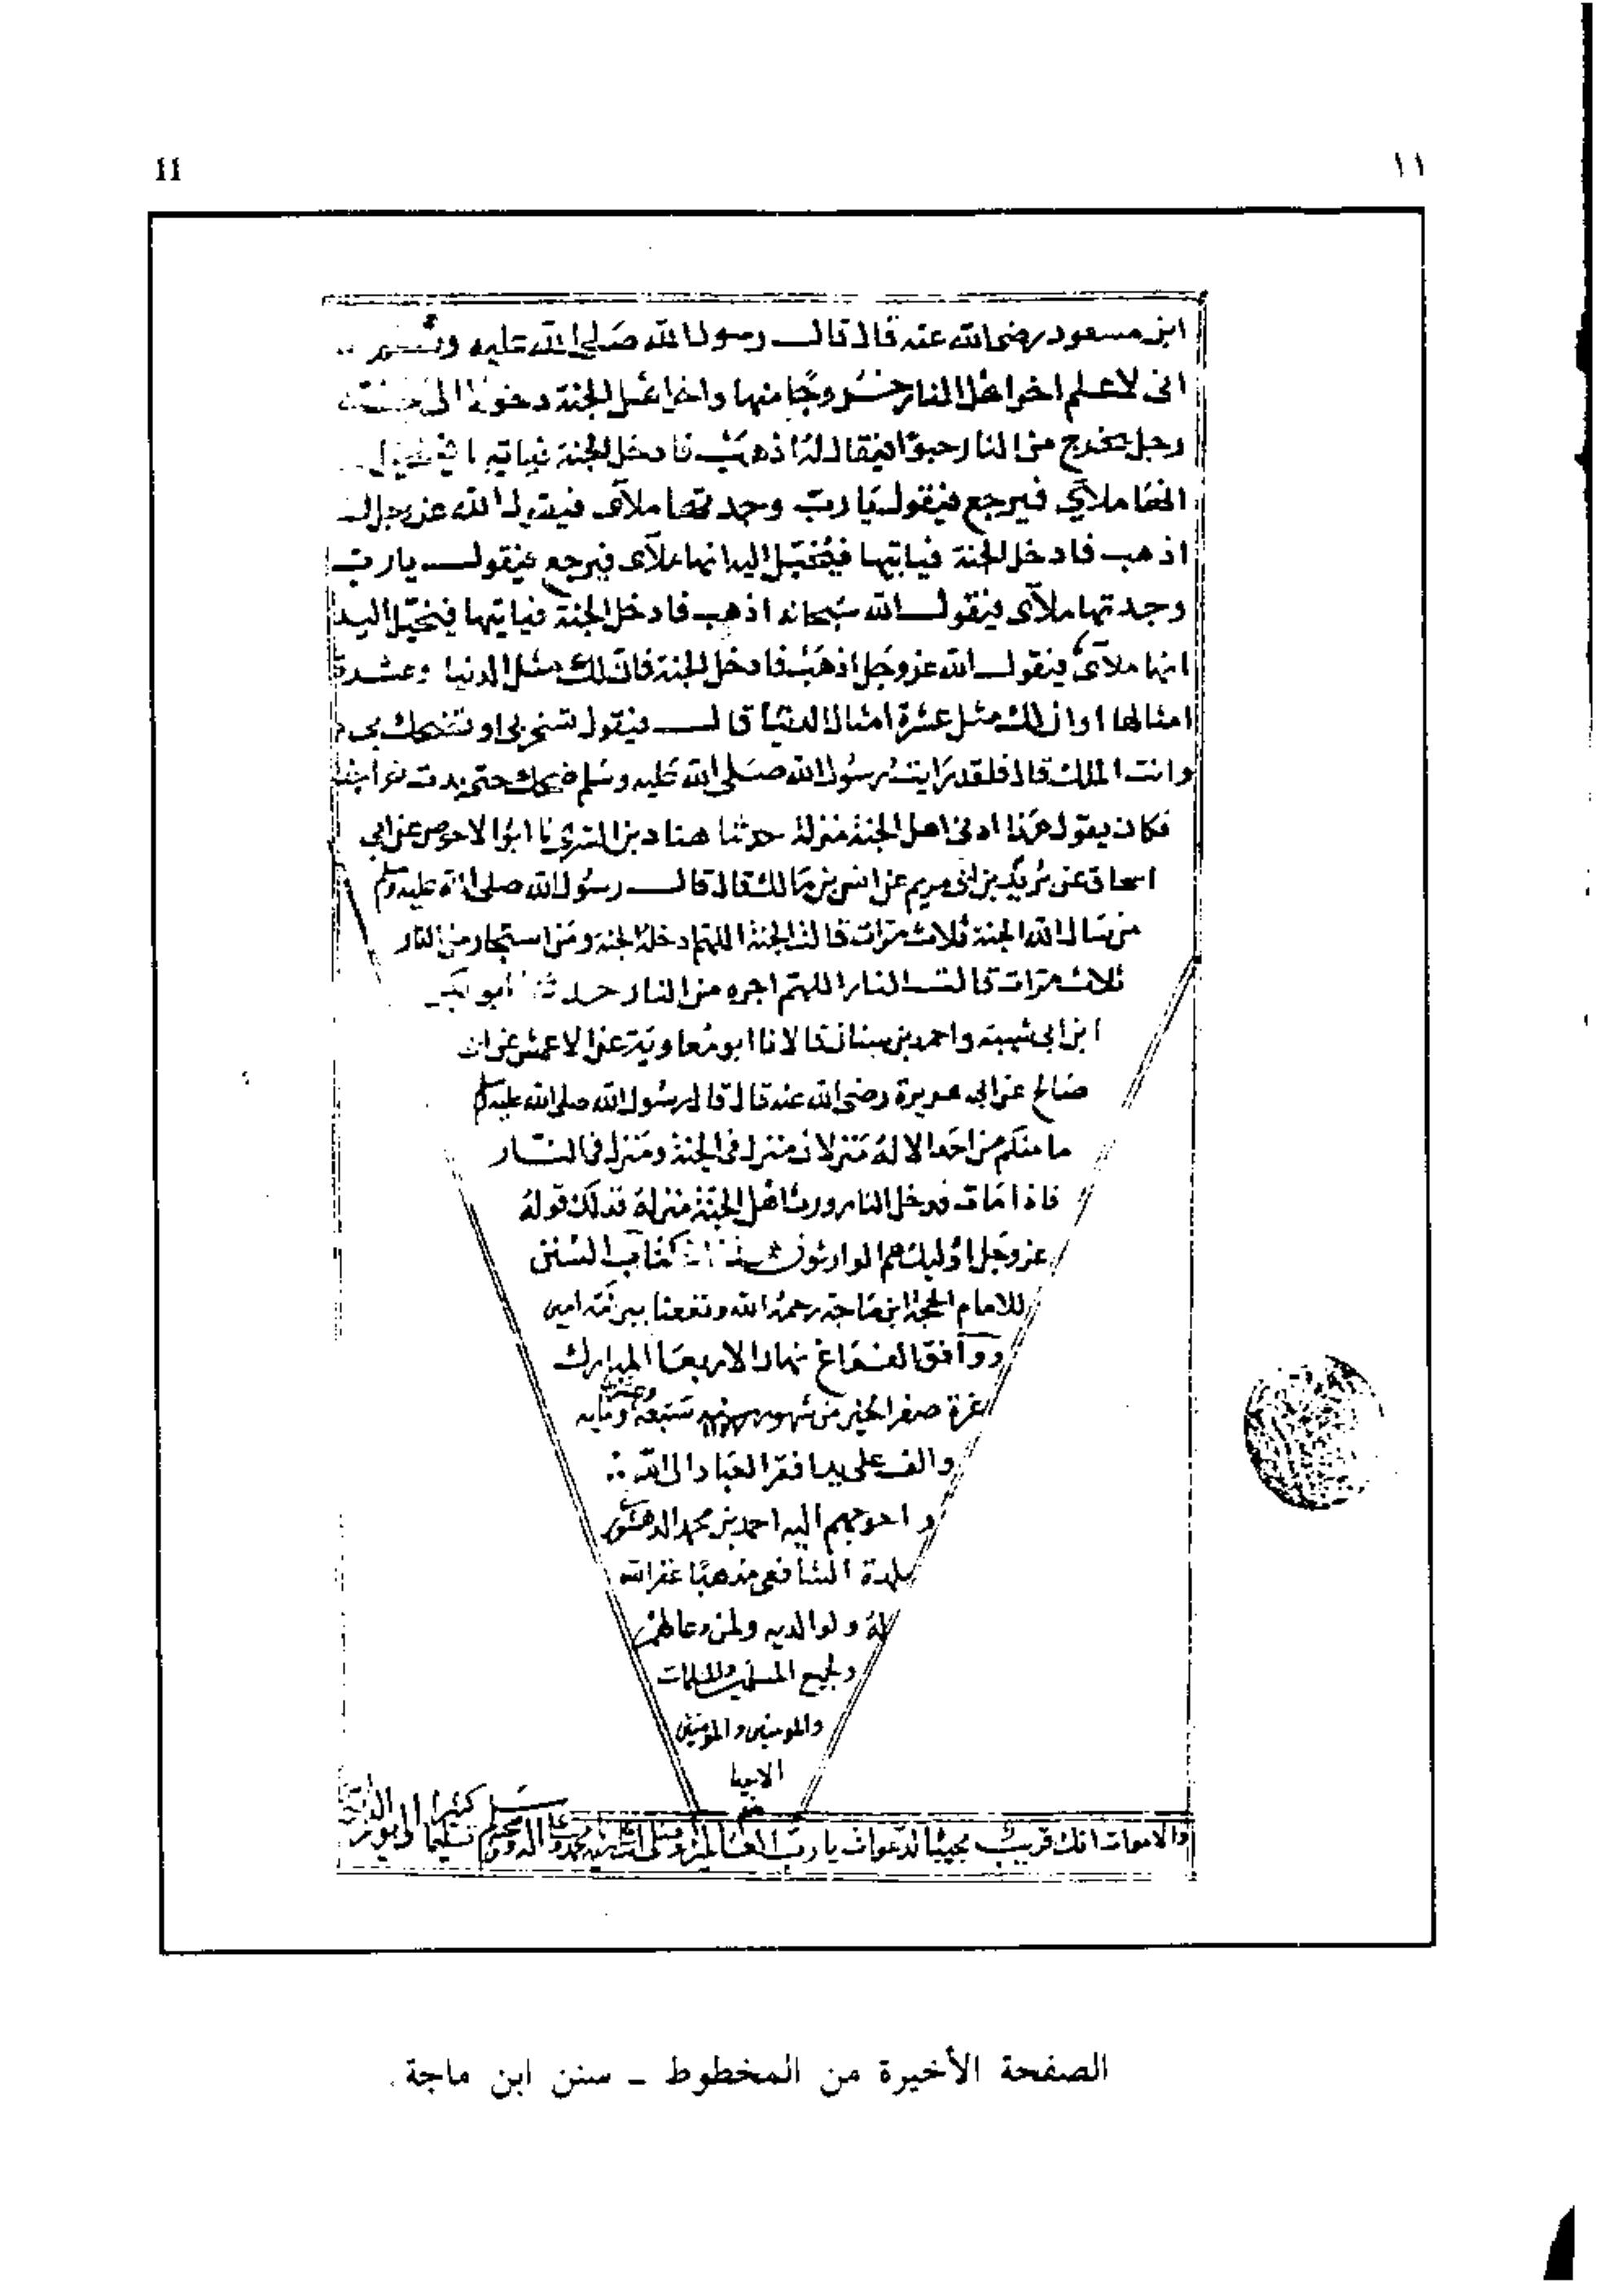 11
١١
ابن مسعود رضى الله عنه قال قال رسول الله صلى الله عليه وسلم
انى لاعلم اخر اهل النار خروجًا منها واخر اهل الجنة دخولا الى الجنة
رجل يخرج من النار حبوًا فيقال لهُ اذهَبْ فادخل الجنة فياتيها فيخيل
اليه انها ملآى فيرجع فيقول يَا ربّ وجدتها ملآى فيقول الله عز وجل
اذهب فادخل الجنة فياتيها فيُخيّل اليه انها ملآى فيرجع فيقول يارب
وجدتها ملآى فيقول الله سُبحانه اذهب فادخل الجنة فياتيها فيخيّل اليه
انها ملآى فيقول الله عز وجَل اذهَبْ فادخل الجنة فان لك مثل الدنيا وعشرة
امثالها اوان لك مثل عشرة امثال الدنيا قال فيقول تسخر بى او تضحك بى
وانت الملك قال فلقد رَايتُ رسُول الله صَلى الله عَليه وسَلم ضحك حتى بدت نواجذه
فكان يقول هَذا ادنى اهل الجنة منزلة حدثنا هناد بن السَّرى نا ابو الاحوص عن ابى
اسحاق عن بُرَيد بن ابى مريم عن انس بن مَالك قال قال رسُول الله صلى الله عليه وسلم
من سَال الله الجنة ثلاث مَرات قالت الجنة اللهم ادخلهُ الجنة ومَن استجار من النار
ثلاث مَرات قالت النار اللهم اجره من النار حدثنا ابو بكر
ابن ابى شيبة واحمد بن سنان قالا نا ابو مُعاويَة عن الاعمش عن ابى
صَالح عن ابى هريرة رضى الله عنه قال قال رسُول الله صلى الله عليه وسلم
ما منكم من احَد الا لهُ مَنزلان منزل فى الجنة ومَنزل فى النَّار
فاذا مَات فدخل النار ورث اهل الجَنة منزلهُ فذلك قولهُ
عز وجَل اوليك هم الوارثون كتاب السُنن
للامام الحجة ابن مَاجة رحمهُ الله ونفعنا ببركته امين
ووافق الفَراغ نهار الاربعَا المبارك
غرة صفر الخير من شهور سنة سَبعة وعشرين ومايه
والف على يد افقر العبَاد الى الله
واحوجهم اليه احمد بن محمد
بلدة الشافعى مذهبًا غفر الله
لهُ ولوالديه ولمن دعا لهم
ولجميع المسلمين والمسلمات
والمومنين والمومنات
الاحيا
منهم
والاموات انك قريب مجيب الدعوات يا ربّ العَالمين وصلى الله على سيدنا محمد وعلى اله وصحبه وسلم تسليما كثيرا الى يوم الدين
الصفحة الأخيرة من المخطوط ــ سنن ابن ماجة .